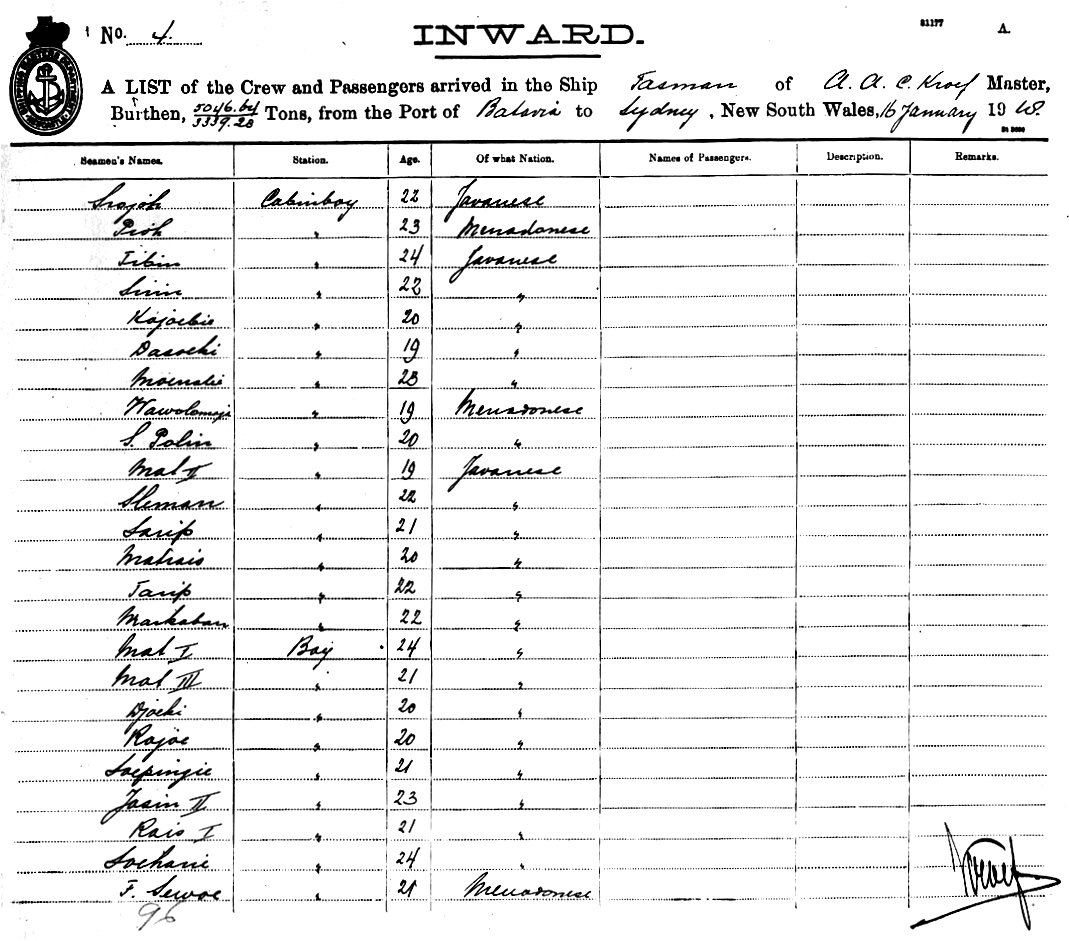 No. 4.
INWARD.
81177
A.
A LIST of the Crew and Passengers arrived in the Ship Tasman of A. A. C. Kroef Master,
Burthen, 5046.64 / 3339.28 Tons, from the Port of Batavia to Sydney, New South Wales, 16 January 19
Seamen's Names. Station. Age. Of what Nation. Names of Passengers. Description. Remarks.
Cabinboy 22 Javanese
Pioh " 23 Menadonese
Tibin " 24 Javanese
Sirin " 22 "
Kojoebie " 20 "
Dasoeki " 19 "
Moenalie " 23 "
19 Menadonese
S. Polin " 20 "
Mat II " 19 Javanese
Sleman " 22 "
Sarip " 21 "
Matrais " 20 "
Tarip " 22 "
Markaban " 22 "
Mat I Boy 24 "
Mat III " 21 "
Djoeki " 20 "
Rajoe " 20 "
Soepingie " 21 "
Jasin II " 23 "
Rais I " 21 "
Soeharie " 24 "
F. Sewoe " 21 Menadonese
Kroef
96